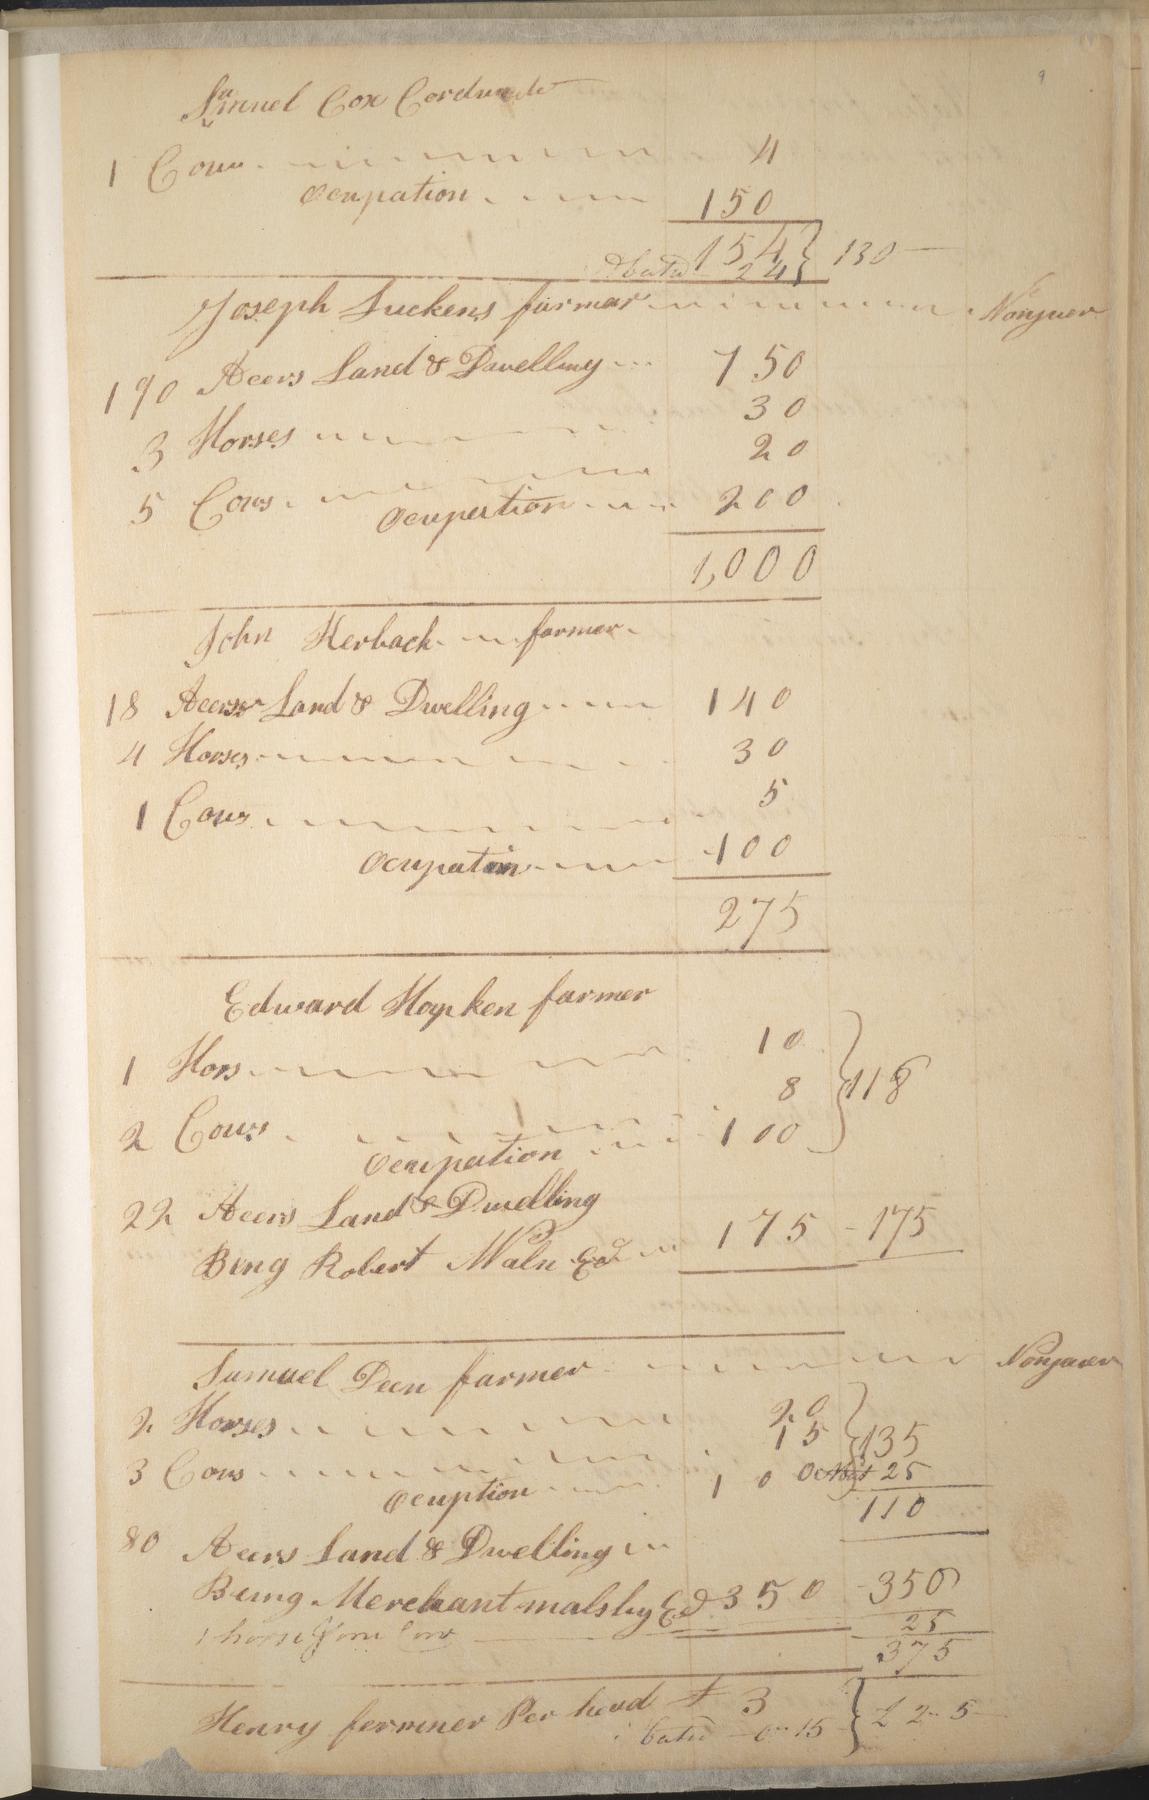 9
Samuel Cox Cordwader
1 Cow 4
Ocupation 150
154 } 130
Abated 24
Joseph Luckens farmer Nonjuer
190 Acers Land & Dwelling 750
3 Horses 30
5 Cows 20
Ocupation 200
1,000
John Kerbach farmer
18 Acers Land & Dwelling 140
4 Horses 30
1 Cow 5
Ocupation 100
275
Edward Hopken farmer
1 Hors 10
2 Cows 8 } 118
Ocupation 100
22 Acers Land & Dwelling
Bing Robert Waln Ed 175 - 175
Samuel Deen farmer Nonjuer
2 Horses 20
3 Cows 15 } 135
Ocuption 100 Abat 25
110
80 Acers Land & Dwelling
Being Merchant malsby Ed 350 - 350
1 horse & one Cow 25
375
Henry fermner Per head £ 3 } £ 2 - 5
bated - 0 - 15